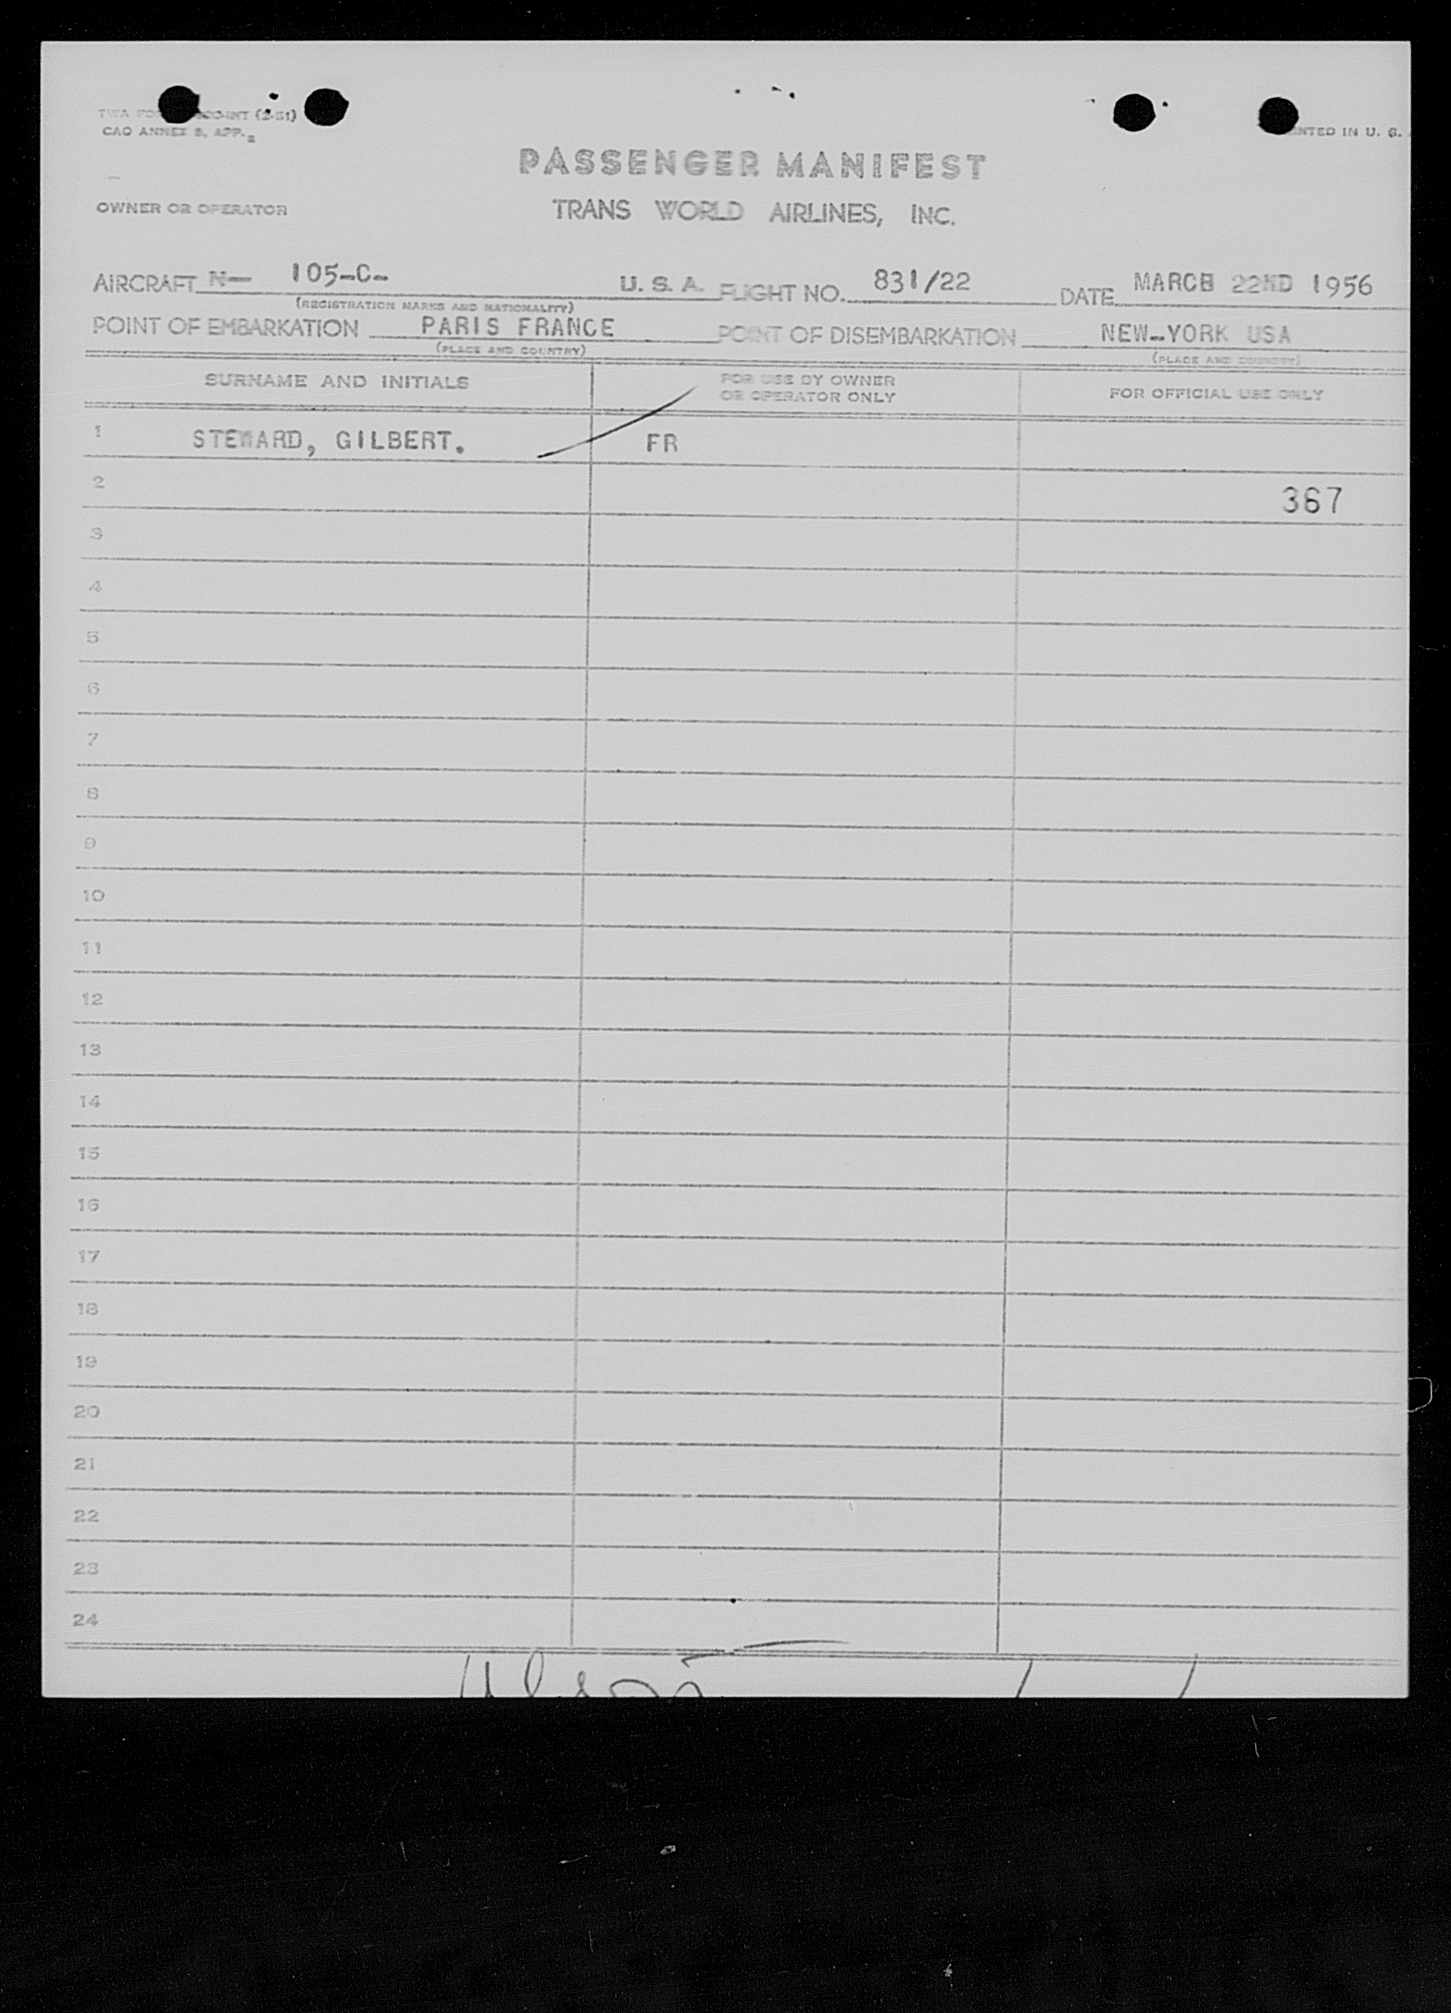 CAO ANNEX 8, APP. 2
PRINTED IN U. S.
PASSENGER MANIFEST
OWNER OR OPERATOR TRANS WORLD AIRLINES, INC.
AIRCRAFT N— 105-C- U. S. A. FLIGHT NO. 831/22 DATE MARCH 22ND 1956
(REGISTRATION MARKS AND NATIONALITY)
POINT OF EMBARKATION PARIS FRANCE POINT OF DISEMBARKATION NEW-YORK USA
(PLACE AND COUNTRY) (PLACE AND COUNTRY)
SURNAME AND INITIALS FOR USE BY OWNER OR OPERATOR ONLY FOR OFFICIAL USE ONLY
1 STEWARD, GILBERT. FR
2 367
3
4
5
6
7
8
9
10
11
12
13
14
15
16
17
18
19
20
21
22
23
24